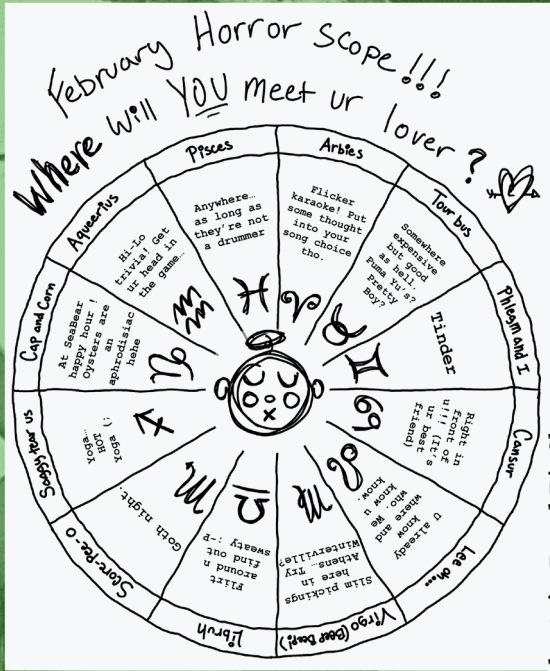 February Horror Scope!!!
Where Will YOU meet ur lover?
Pisces
Anywhere...
as long as
they're not
a drummer
Arbies
Flicker
karaoke! Put
some thought
into your
song choice
tho.
Tour bus
Somewhere
expensive
but good
as hell.
Puma Yu's?
Pretty
Boy?
Phleam and I
Tinder
Cansur
Right in
front of
u!!! (It's
ur best
friend)
Lee oh...
U already
know
where and
who. We
know u
know.
Virgo (Beep Beep!)
Slim pickings
here in
Athens... Try
Winterville?
Libruh
Flirt
around n
find out
sweaty ~:P
Store-Pee-O
Goth night.
Saggy tear us
Yoga :(
HOT
Yoga...
Cap and Corn
At SeaBear
happy hour !
Oysters are
an
aphrodisiac
hehe
Aqueerius
Hi-Lo
trivia! Get
ur head in
the game...